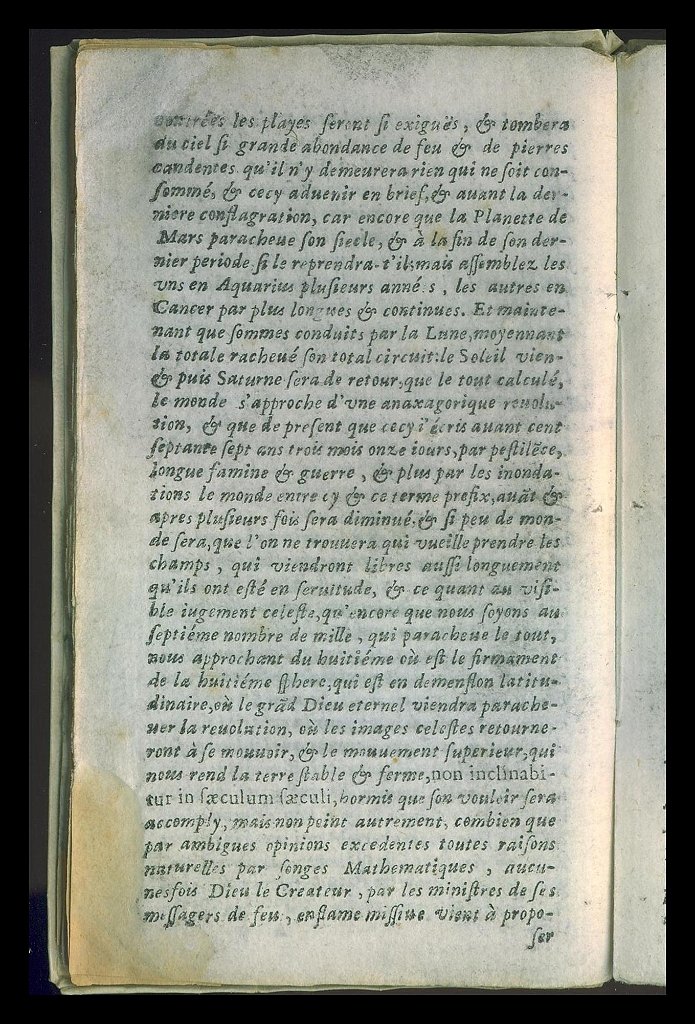 contrées les playes seront si exiguës, & tombera
du ciel si grande abondance de feu & de pierres
candentes qu'il n'y demeurera rien qui ne soit con-
sommé, & cecy aduenir en brief, & auant la der-
niere conflagration, car encore que la Planette de
Mars paracheue son siecle, & à la fin de son der-
nier periode, si le reprendra-t'il: mais assemblez les
vns en Aquarius plusieurs années, les autres en
Cancer par plus longues & continues. Et mainte-
nant que sommes conduits par la Lune, moyennant
la totale racheué son total circuit: le Soleil vien-
& puis Saturne sera de retour, que le tout calculé,
le monde s'approche d'vne anaxagorique reuolu-
tion, & que de present que cecy i'écris auant cent
septante sept ans trois mois onze iours, par pestilẽce,
longue famine & guerre, & plus par les inonda-
tions le monde entre cy & ce terme prefix, auãt &
apres plusieurs fois sera diminué, & si peu de mon-
de sera, que l'on ne trouuera qui vueille prendre les
champs, qui viendront libres aussi longuement
qu'ils ont esté en seruitude, & ce quant au visi-
ble iugement celeste, qu'encore que nous soyons au
septiéme nombre de mille, qui paracheue le tout,
nous approchant du huitiéme où est le firmament
de la huitiéme sphere, qui est en demension latitu-
dinaire, où le grãd Dieu eternel viendra parache-
uer la reuolution, où les images celestes retourne-
ront à se mouuoir, & le mouuement superieur, qui
nous rend la terre stable & ferme, non inclinabi-
tur in sæculum sæculi, hormis que son vouloir sera
accomply, mais non point autrement, combien que
par ambigues opinions excedentes toutes raisons
naturelles par songes Mathematiques, aucu-
nesfois Dieu le Createur, par les ministres de ses
messagers de feu, en flame missiue vient à propo-
ser